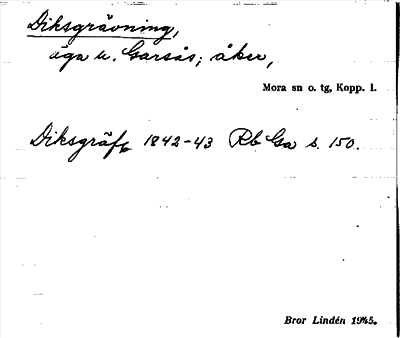 Diksgrävning,
äga u. Garsås; åker,
Mora sn o. tg, Kopp. l.
Diksgräfg 1842-43 Rb Ga s. 150.
Bror Lindén 1945.